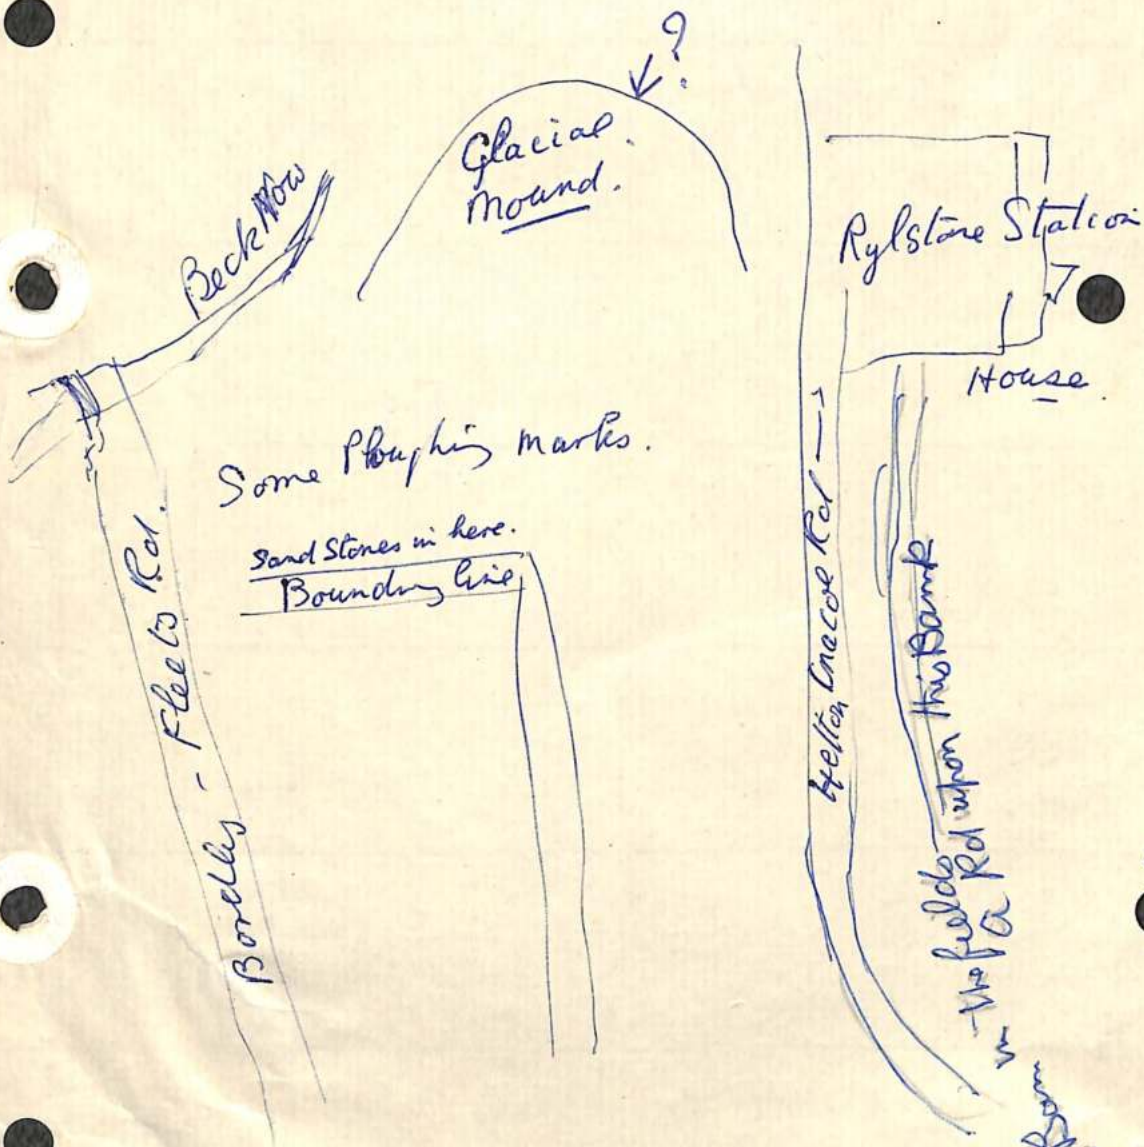 ?
Glacial.
Mound.
Beck Now
Rylstone Station
House
Some Ploughing Marks.
Sand Stones in here.
Boundry line
Bordley - Fleets Rd.
Rd
in the fields
a Rd upon this Bank